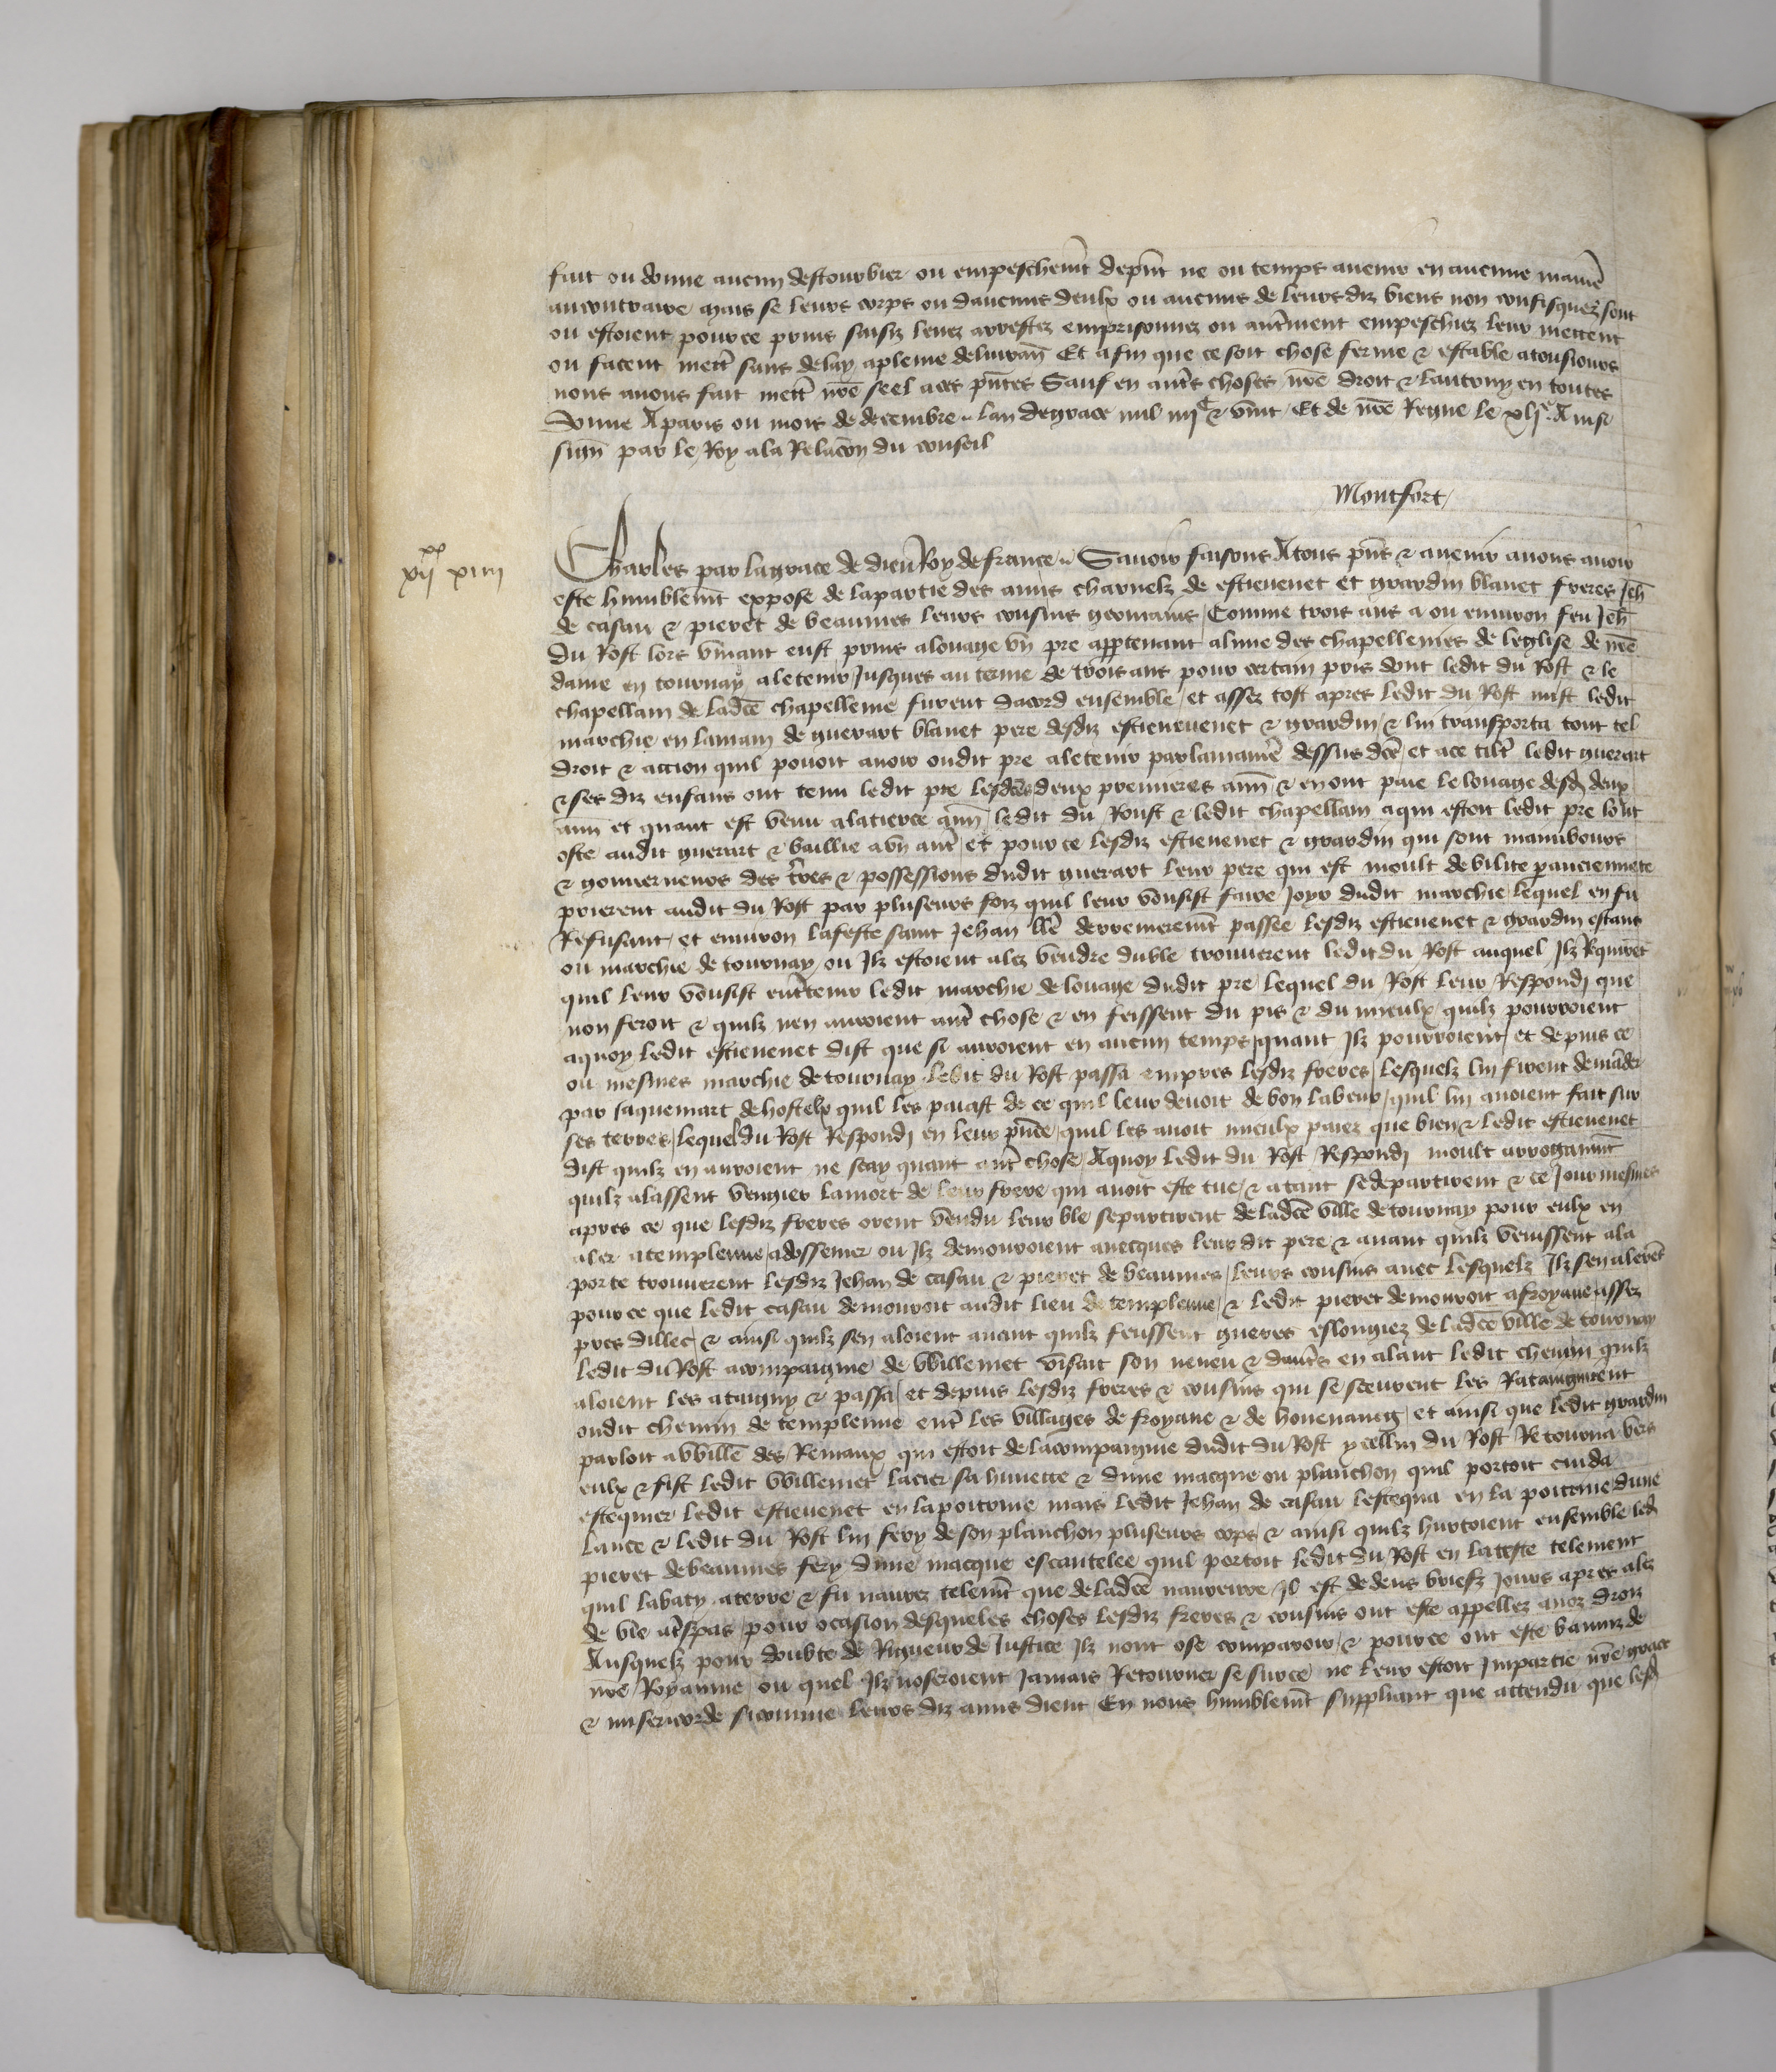 fait ou donne aucun destourbier ou empeschemt depnt ne ou temps auenir en aucune maniē
aucontraire mais se leurs corps ou daucuns deulx ou aucuns de leursdiz biens non confisquez sont
ou estoient pource prins saisiz leuez arrestez emprisonnez ou autrment empeschiez leur mettent
ou facent mettr sans delay apleine deliuran Et afin que ce soit chose ferme & estable atousiours
nous auons fait mettr nrē seel aces pntes Sauf en autrs choses nrē droit & lautruy en toutes
Donne Aparis ou mois de decembre lan degrace mil iiijC & vint Et de nrē Regne le xlje Ainsi
sign par le Roy ala Relacōn du conseil
Montfort
xx
xij xiiij
Charles par lagrace de dieu Roy de france Sauoir faisons Atous pns & auenir auons auoir
este humblemt expose de lapartie des amis charnelz de estieuenet et grardin blanet freres Jeh
de casau & pieret de beaumes leurs cousins germains Comme trois ans a ou enuiron feu Jeh
du Rost lors viuant eust prins alouage vn pre appartenant alune des chapellenies de leglise de nrē
dame en tournay aletenir Jusques au terme de trois ans pour certain pris dont ledit du Rost & le
chapellain de ladcē chapellenie furent dacord ensemble et assez tost apres ledit du Rost mist ledit
marchie en lamain de guerart blanet pere desdiz estieneuenet & grardin & lui transporta tout tel
droit & action quil pouoit auoir oudit pre aletenir parlamanie dessus dcē et ace tiltr ledit guerart
& ses diz enfans ont tenu ledit pre lesdces deux premieres ann & enont paie lelouage desd deux
ann et quant est venu alatierce ann ledit du Roust & ledit chapellain aqui estoit ledit pre lont
oste audit guerart & baillie avn autr et pour ce lesdiz estieuenet & grardin qui sont mainbours
& gouuerneurs des trres & possessions dudit guerart leur pere qui est moult debilite panciennete
prierent audit du Rost par pluseurs foiz quil leur voulsist faire Joyr dudit marchie lequel en fu
Refusant et enuiron lafeste saint Jehan bte derreniercmt passee lesdiz estieuenet & grardin estans
ou marchie de tournay ou Ilz estoient alez vendre duble trouuerent ledit du Rost auquel Ilz Requirēt
quil leur voulsist entrtenir ledit marchie delouage dudit pre lequel du Rost leur Respondi que
non feroit & quilz nen auroient autr chose & en feissent du pis & du mieulx quilz pourroient
aquoy ledit estieuenet dist que si auroient en aucun temps quant Ilz pourroient et depuis ce
ou mesmes marchie detournay ledit du Rost passa empres lesdiz freres lesquelz lui firent demāder
par Jaquemart dehostelx quil les paiast de ce quil leur deuoit de bon labeur quil lui auoient fait sur
ses terres lequel du Rost Respondi en leur pnce quil les auoit mieulx paiez que bien & ledit estieuenet
dist quilz en auroient ne scay quant autr chose Aquoy ledit du Rost Respondi moult arrogammt
quilz alassent vengier lamort de leur frere qui auoit este tue & atant sedepartirent & ce Jour mesmes
apres ce que lesdiz freres orent vendu leur ble separtirent de ladcē ville detournay pour eulx en
aler atempleuue adossemer ou Ilz demouroient auecques leur dit pere & auant quilz venissent ala
porte trouuerent lesdiz Jehan de casau & pieret de beaumes leurs cousins auec lesquelz Ilz sen alerēt
pource que ledit casau demouroit audit lieu de templeuue & ledit pieret demouroit afroyane assez
pres dillec & ainsi quilz sen aloient auant quilz feussent gueres eslongiez de ladcē ville de tournay
ledit du Rost acompaignie de Willemet son neueu & dautrs en alant ledit chemin quilz
aloient les ataigny & passa et depuis lesdiz freres & cousins qui se sceurent les Rataignirent
oudit chemin de templeuue entr les villages de froyane & de honeuaing et ainsi que ledit grardin
parloit aWille des Remaux qui estoit delacompaignie dudit du Rost ycellui du Rost Retourna vers
eulx & fist ledit Willemet lacier sa huuette & dune macque ou planchon quil portoit cuida
estequier ledit estieuenet en lapoitrine mais ledit Jehan de casau lestequa en la poitrine dune
lance & ledit du Rost lui fery deson planchon pluseurs cops & ainsi quilz hurtoient ensemble led
pieret debeaumes fery dune macque escantelee quil portoit ledit du Rost en lateste telement
quil labaty aterre & fu naurez telemt que deladcē naureure Il est dedens briefz Jours apres alez
de vie atrspas pour ocasion desqueles choses lesdiz freres & cousins ont este appellez anoz droiz
Ausquelz pour doubte de Rigueur de Justice Ilz nont ose comparoir & pource ont este banniz de
nrē Royaume ou quel Ilz noseroient Jamais Retourner se surce ne leur estoit Impartie nrē grace
& misericorde sicomme leurs diz amis dient En nous humblemt suppliant que attendu que lesd